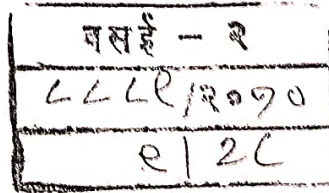 वसई - २
८८८९/२०१०
९|२८